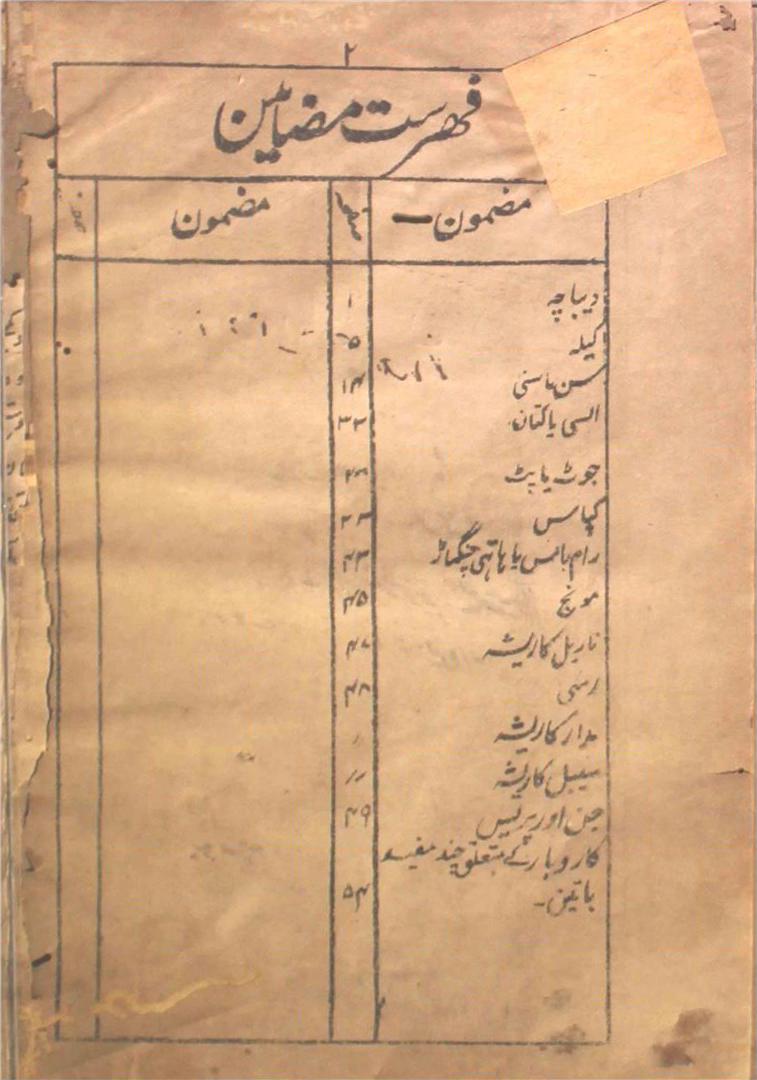 ۲
فہرست مضامین
مضمون صفحہ مضمون صفحہ
دیباچہ ۱
کیلہ ۵
سن یا سنی ۱۴
السی یا کتان ۳۲
جوٹ یا پٹ
کپاس
رام بانس یا ہاتھی چنگھاڑ ۴۳
مونج ۴۵
ناریل کا ریشہ ۴۷
رسی ۴۸
مدار کا ریشہ 〃
سیمل کا ریشہ 〃
جن اور پریس ۴۹
کاروبار کے متعلق چند مفید
باتین۔ ۵۴